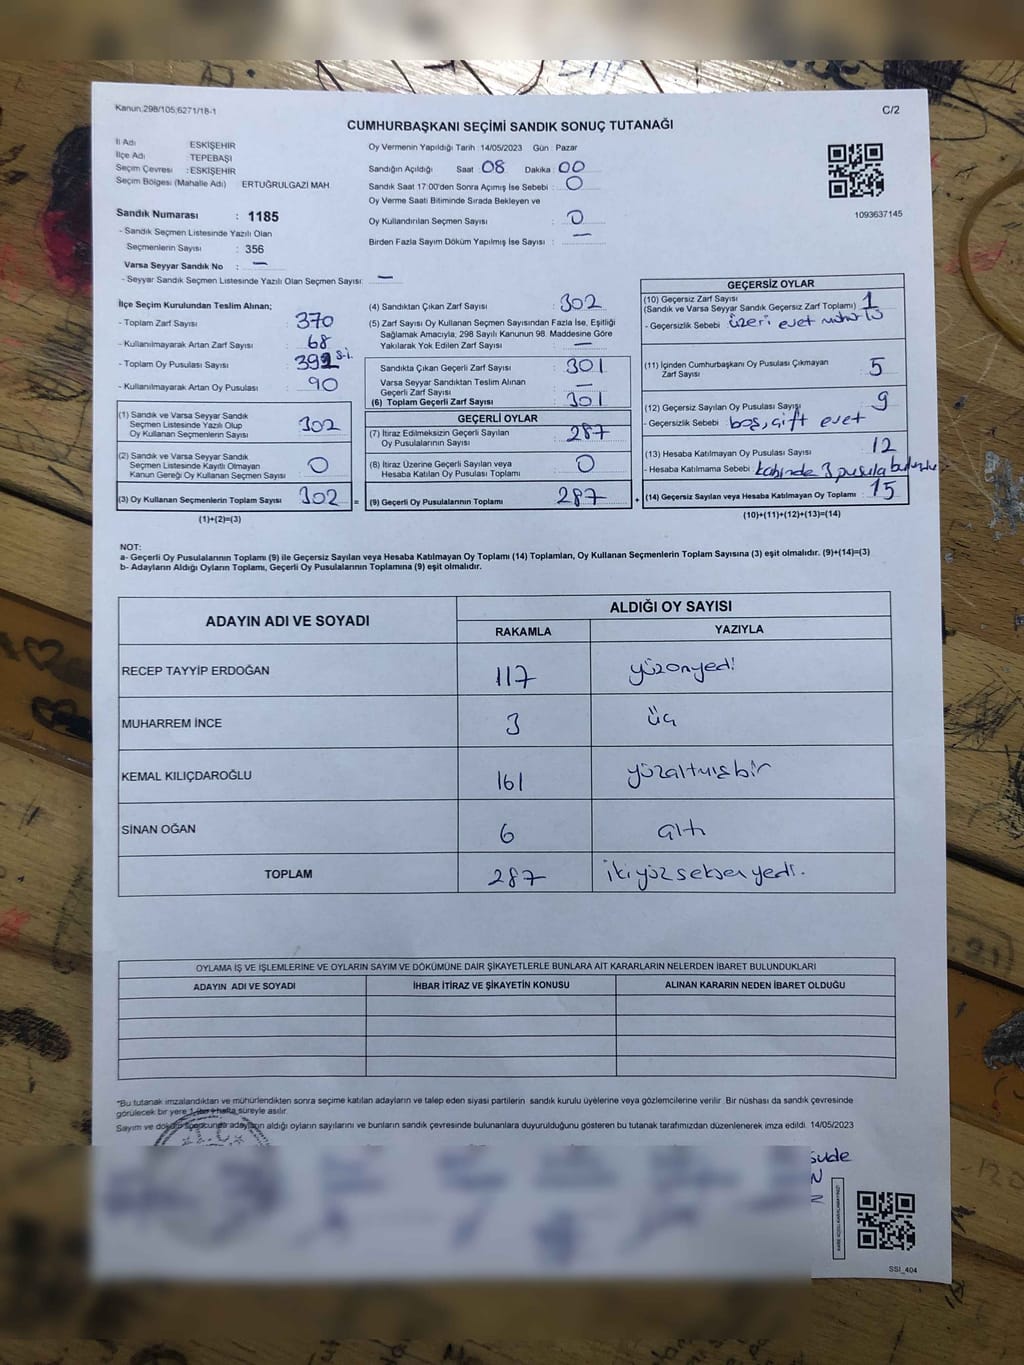 Kanun.298/105;6271/18-1
C/2
CUMHURBAŞKANI SEÇİMİ SANDIK SONUÇ TUTANAĞI
İl Adı ESKİŞEHİR
İlçe Adı TEPEBAŞI
Seçim Çevresi : ESKİŞEHİR
Seçim Bölgesi (Mahalle Adı) ERTUĞRULGAZİ MAH.
Sandık Numarası : 1185
- Sandık Seçmen Listesinde Yazılı Olan
Seçmenlerin Sayısı : 356
Varsa Seyyar Sandık No : —
- Seyyar Sandık Seçmen Listesinde Yazılı Olan Seçmen Sayısı: —
Oy Vermenin Yapıldığı Tarih : 14/05/2023 Gün : Pazar
Sandığın Açıldığı Saat : 08 Dakika : 00
Sandık Saat 17:00'den Sonra Açımış İse Sebebi : 0
Oy Verme Saati Bitiminde Sırada Bekleyen ve
Oy Kullandırılan Seçmen Sayısı : 0
Birden Fazla Sayım Döküm Yapılmış İse Sayısı : —
1093637145
İlçe Seçim Kurulundan Teslim Alınan;
- Toplam Zarf Sayısı : 370
- Kullanılmayarak Artan Zarf Sayısı : 68
- Toplam Oy Pusulası Sayısı : 392 s.i.
- Kullanılmayarak Artan Oy Pusulası : 90
(1) Sandık ve Varsa Seyyar Sandık
Seçmen Listesinde Yazılı Olup
Oy Kullanan Seçmenlerin Sayısı : 302
(2) Sandık ve Varsa Seyyar Sandık
Seçmen Listesinde Kayıtlı Olmayan
Kanun Gereği Oy Kullanan Seçmen Sayısı : 0
(3) Oy Kullanan Seçmenlerin Toplam Sayısı : 302 =
(1)+(2)=(3)
(4) Sandıktan Çıkan Zarf Sayısı : 302
(5) Zarf Sayısı Oy Kullanan Seçmen Sayısından Fazla İse, Eşitliği
Sağlamak Amacıyla, 298 Sayılı Kanunun 98. Maddesine Göre
Yakılarak Yok Edilen Zarf Sayısı : —
Sandıkta Çıkan Geçerli Zarf Sayısı : 301
Varsa Seyyar Sandıktan Teslim Alınan
Geçerli Zarf Sayısı : —
(6) Toplam Geçerli Zarf Sayısı : 301
GEÇERLİ OYLAR
(7) İtiraz Edilmeksizin Geçerli Sayılan
Oy Pusulalarının Sayısı : 287
(8) İtiraz Üzerine Geçerli Sayılan veya
Hesaba Katılan Oy Pusulası Toplamı : 0
(9) Geçerli Oy Pusulalarının Toplamı : 287 +
GEÇERSİZ OYLAR
(10) Geçersiz Zarf Sayısı
(Sandık ve Varsa Seyyar Sandık Geçersiz Zarf Toplamı) : 1
- Geçersizlik Sebebi : üzeri evet mühürlü
(11) İçinden Cumhurbaşkanı Oy Pusulası Çıkmayan
Zarf Sayısı : 5
(12) Geçersiz Sayılan Oy Pusulası Sayısı : 9
- Geçersizlik Sebebi : boş, çift evet
(13) Hesaba Katılmayan Oy Pusulası Sayısı : 12
- Hesaba Katılmama Sebebi : kabinde 3 pusula
(14) Geçersiz Sayılan veya Hesaba Katılmayan Oy Toplamı : 15
(10)+(11)+(12)+(13)=(14)
NOT:
a- Geçerli Oy Pusulalarının Toplamı (9) ile Geçersiz Sayılan veya Hesaba Katılmayan Oy Toplamı (14) Toplamları, Oy Kullanan Seçmenlerin Toplam Sayısına (3) eşit olmalıdır. (9)+(14)=(3)
b- Adayların Aldığı Oyların Toplamı, Geçerli Oy Pusulalarının Toplamına (9) eşit olmalıdır.
ADAYIN ADI VE SOYADI
ALDIĞI OY SAYISI
RAKAMLA YAZIYLA
RECEP TAYYİP ERDOĞAN 117 yüzonyedi
MUHARREM İNCE 3 üç
KEMAL KILIÇDAROĞLU 161 yüzaltmışbir
SİNAN OĞAN 6 altı
TOPLAM 287 ikiyüzseksenyedi.
OYLAMA İŞ VE İŞLEMLERİNE VE OYLARIN SAYIM VE DÖKÜMÜNE DAİR ŞİKAYETLERLE BUNLARA AİT KARARLARIN NELERDEN İBARET BULUNDUKLARI
ADAYIN ADI VE SOYADI İHBAR İTİRAZ VE ŞİKAYETİN KONUSU ALINAN KARARIN NEDEN İBARET OLDUĞU
*Bu tutanak imzalandıktan ve mühürlendikten sonra seçime katılan adayların ve talep eden siyasi partilerin sandık kurulu üyelerine veya gözlemcilerine verilir. Bir nüshası da sandık çevresinde
görülecek bir yere 1 (bir) hafta süreyle asılır.
Sayım ve döküm sonucunda adayların aldığı oyların sayılarını ve bunların sandık çevresinde bulunanlara duyurulduğunu gösteren bu tutanak tarafımızdan düzenlenerek imza edildi. 14/05/2023
T.C.
Sude
N
SSI_404